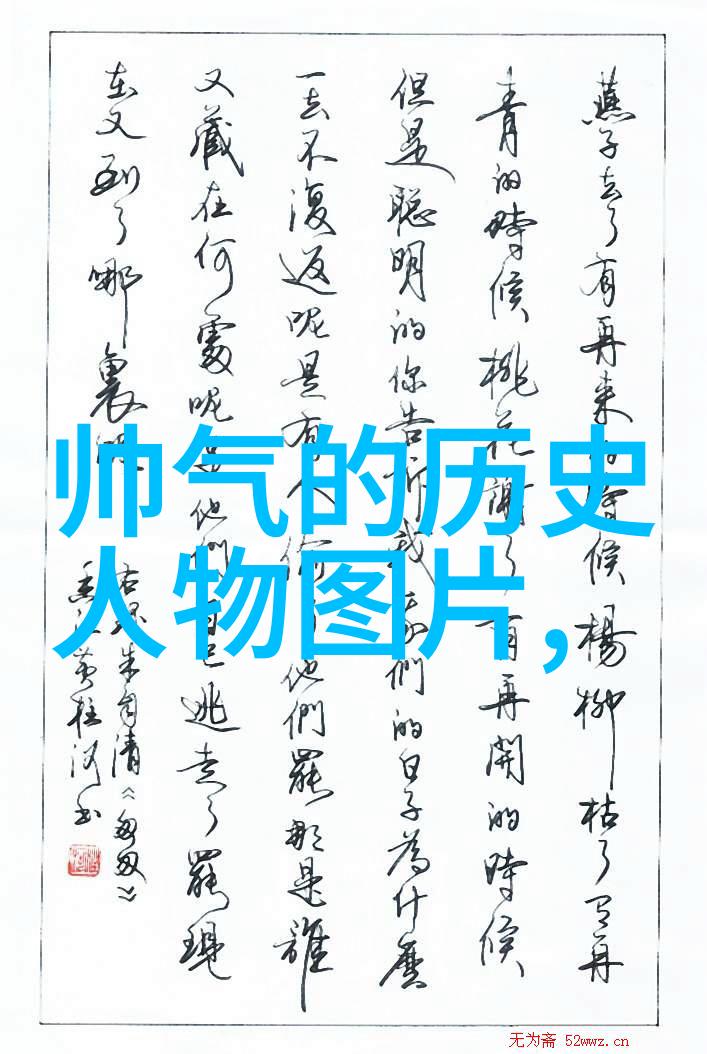 燕子去了有再来的時候楊柳枯了有再
青的時候桃花謝了有再開的時候
但是聪明的你告訴我我們的日子為什麽
一去不復返呢是有人偷了他們罷那是誰
又藏在何處呢是他們自己逃走了罷現
在又到了哪裏呢
右録朱自清《匆匆》
香江黄柱河书
帅气的历史
人物图片,
无为斋 52wwz.cn